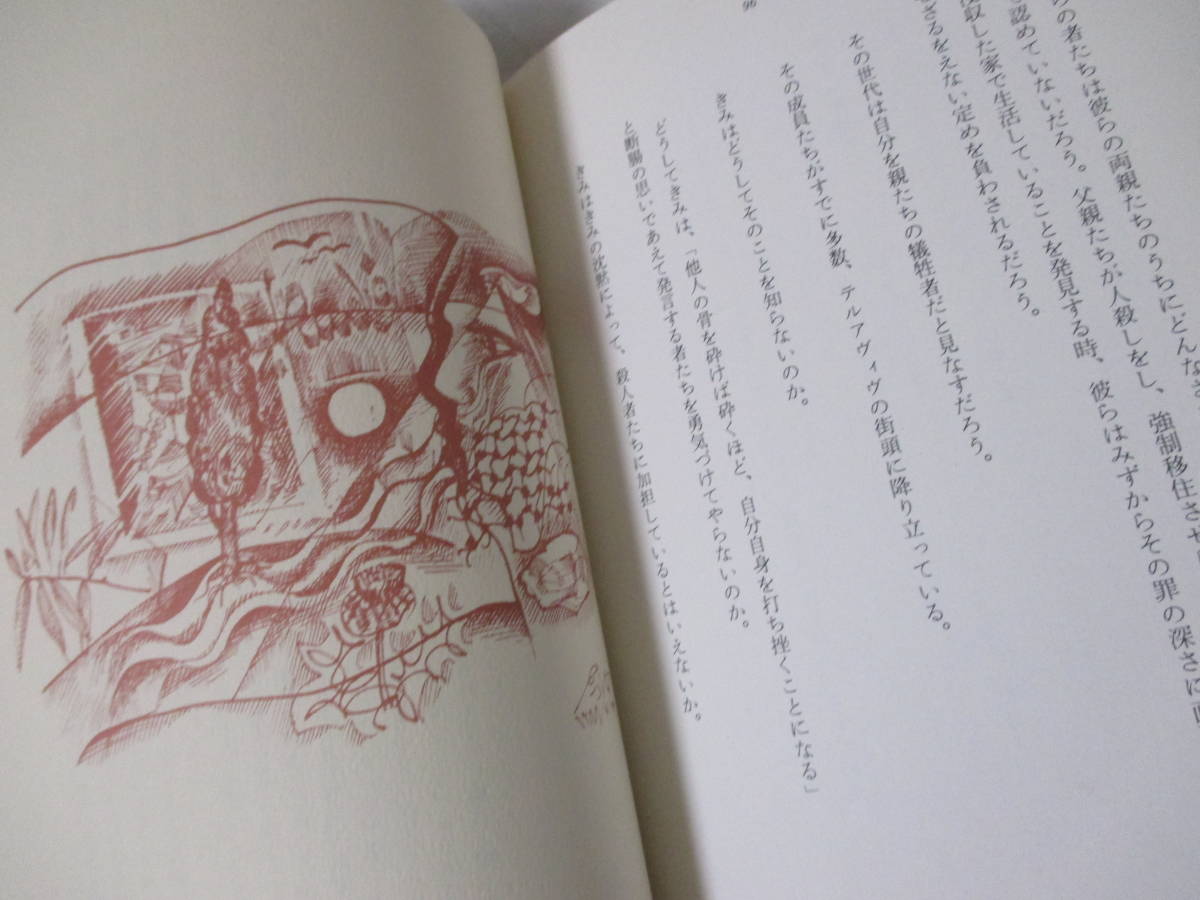 96
らの者たちは彼らの両親たちのうちにどんな
認めていないだろう。父親たちが人殺しをし、強制移住させ
収した家で生活していることを発見する時、彼らはみずからその罪の深さに
ざるをえない定めを負わされるだろう。
その世代は自分を親たちの犠牲者だと見なすだろう。
その成員たちがすでに多数、テルアヴィヴの街頭に降り立っている。
きみはどうしてそのことを知らないのか。
どうしてきみは、「他人の骨を砕けば砕くほど、自分自身を打ち挫くことになる」
と断腸の思いであえて発言する者たちを勇気づけてやらないのか。
きみはきみの沈黙によって、殺人者たちに加担しているとはいえないか。